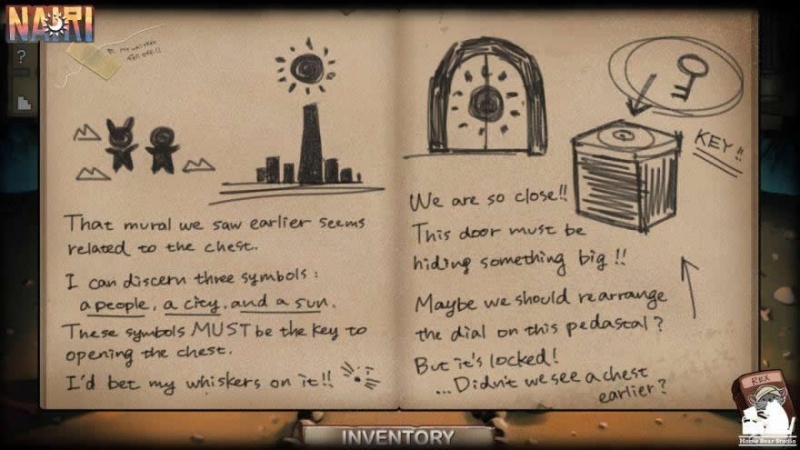 NAIRI
?
That mural we saw earlier seems
related to the chest.
I can discern three symbols:
a people, a city, and a sun.
These symbols MUST be the key to
opening the chest.
I'd bet my whiskers on it!!
KEY!!
We are so close!!
This door must be
hiding something big!!
Maybe we should rearrange
the dial on this pedastal?
But it's locked!
...Didn't we see a chest
earlier?
REX
Home Bear Studio
INVENTORY